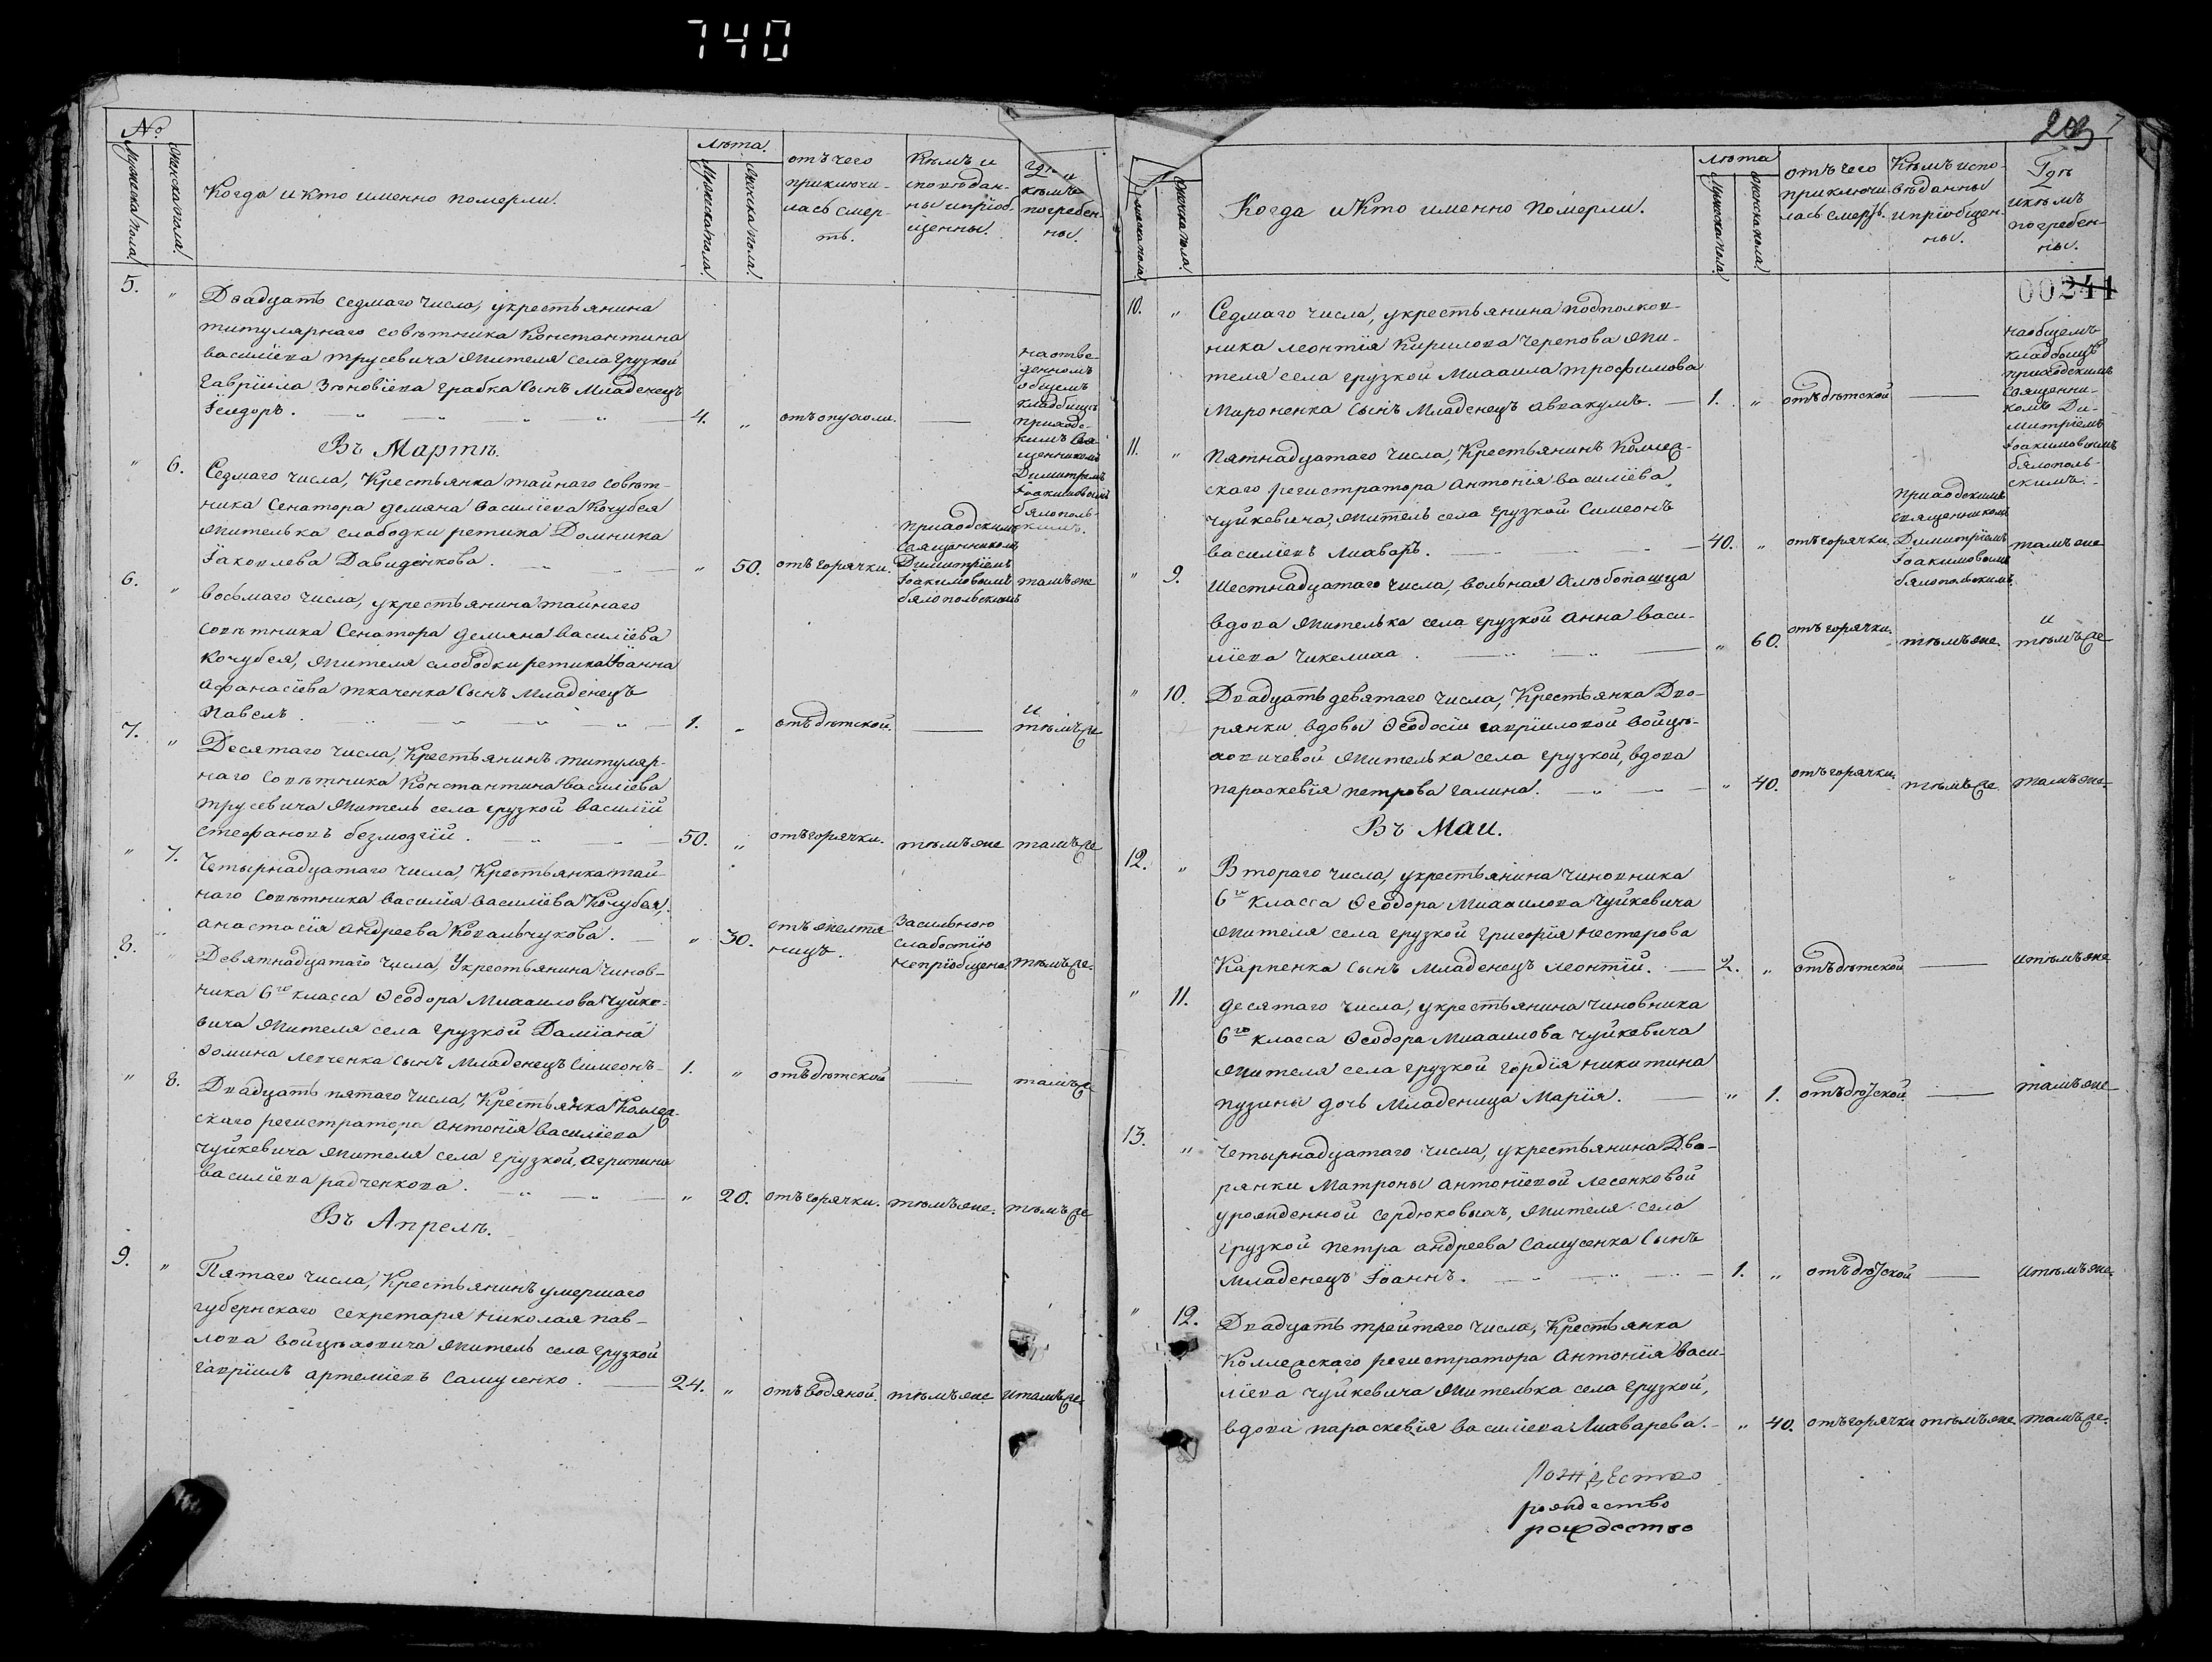 740
№
Мужеска пола.
Женска пола.
Когда и кто именно померли.
лѣта.
Мужеска пола.
Женска пола.
отъ чего
приключи-
лась смер-
ть.
Кѣмъ и
споведан-
ны и пріоб-
щенны.
Гдѣ и
кѣмъ
погребен-
ны.
5. "
Двадцать седмаго числа, укрестьянина
титулярнаго совѣтника Константина
василіева трусевича жителя села грузкой
гавріила Зѣновіева грабка сынъ младенецъ
Ѳеодоръ. 4. " отъ опухоли. —
на отве-
денномъ
общемъ
кладбищѣ
приходс-
кимъ свя-
щенникомъ
Димитріемъ
Іоакимовымъ
бялополь-
скимъ.
Въ Мартѣ.
" 6.
Седмаго числа, Крестьянка тайнаго совѣт-
ника Сенатора демяна василіева Кочубея
жителька слободки ретика Домника
Іаковлева Давиденкова. " 50. отъ горячки.
Приходскимъ
Священникомъ
Димитріемъ
Іоакимовымъ
бялопольскимъ
тамъ же
6. "
восьмаго числа, укрестьянина тайнаго
совѣтника Сенатора демяна василіева
Кочубея, жителя слободки ретика Іоанна
Афанасіева ткаченка сынъ младенецъ
Павелъ. 1. " отъ дѣтской. — и тѣмъ же
7. "
Десятаго числа, Крестьянинъ титуляр-
наго совѣтника Константина василіева
трусевича житель села грузкой василій
стефановъ безмозгій. 50. " отъ горячки. тѣмъ же тамъ же
" 7.
Четырнадцатаго числа, Крестьянка тай-
наго совѣтника василія василіева Кочубея,
анастасія андреева Ковальчукова. " 30. отъ желтя-
ницъ.
Засильною
слабостію
непріобщена. тѣмъ же.
8. "
Девятнадцатаго числа, Укрестьянина чинов-
ника 6го класса Ѳеодора Михаилова Чуйке-
вича жителя села грузкой Даміана
Ѳомина левченка сынъ младенецъ Симеонъ 1. " отъ дѣтской — тамъ же
" 8.
Двадцать пятаго числа, Крестьянка Коллеж-
скаго регистратора антонія василіева
чуйкевича жителя села грузкой, агрипина
василіева радченкова. " 20. отъ горячки. тѣмъ же. тѣмъ же
Въ Апрелѣ.
9. "
Пятаго числа, Крестьянинъ умершаго
губернскаго секретаря николая пав-
лова войцѣховича житель села грузкой
гавріилъ артеміевъ самусенко. 24. " отъ водяной. тѣмъ же и тамъ же
203
00241
Мужеска пола.
Женска пола.
Когда и Кто именно Померли.
лѣта
Мужеска пола.
Женска пола.
отъ чего
приключи-
лась смерть.
Кѣмъ испо-
вѣданны
и пріобщен-
ны.
Гдѣ
и кѣмъ
погребен-
ны.
10. "
Седмаго числа, укрестьянина подполков-
ника леонтія Кирилова Черепова жи-
теля села грузкой Михаила трофимова
Мироненка сынъ младенецъ аввакумъ. 1. " отъ дѣтской —
на общемъ
кладбищѣ
приходскимъ
священни-
комъ Ди-
митріемъ
Іоакимовымъ
бялополь-
скимъ.
11. "
Пятнадцатаго числа, Крестьянинъ Коллеж-
скаго регистратора антонія василіева
чуйкевича, житель села грузкой Симеонъ
василіевъ лихваръ. 40. " отъ горячки.
Приходскимъ
священникомъ
Димитріемъ
Іоакимовымъ
бялопольскимъ.
тамъ же
" 9.
Шестнадцатаго числа, вольная хлѣбопашца
вдова жителька села грузкой анна васи-
ліева чикелиха. " 60. отъ горячки. тѣмъ же. и тѣмъ же
" 10.
Двадцать девятаго числа, Крестьянка Дво-
рянки вдовы Ѳеодосіи гавріиловой войцѣ-
ховичевой жителька села грузкой, вдова
параскевія петрова галина. " 40. отъ горячки. тѣмъ же. тамъ же.
Въ Маи.
12. "
Втораго числа, укрестьянина чиновника
6го Класса Ѳеодора Михаилова чуйкевича
жителя села грузкой григорія нестерова
Карпенка сынъ младенецъ леонтій. 2. " отъ дѣтской — и тѣмъ же
" 11.
десятаго числа, укрестьянина чиновника
6го класса Ѳеодора Михаилова чуйкевича
жителя села грузкой гордія никитина
пузины дочь младеница Марія. " 1. отъ дѣтской — тамъ же
13. "
четырнадцатаго числа, укрестьянина Дво-
рянки Матроны антоніевой лесенковой
урожденной сердюковыхъ, жителя села
грузкой петра андреева самусенка сынъ
младенецъ Іоаннъ. 1. " отъ дѣтской — и тѣмъ же.
" 12.
Двадцать трейтяго числа, Крестьянка
Коллежскаго регистратора антонія васи-
ліева чуйкевича жителька села грузкой,
вдова параскевія василіева Лихварева. " 40. отъ горячки тѣмъ же. тамъ же.
Рождество
рождество
рождество